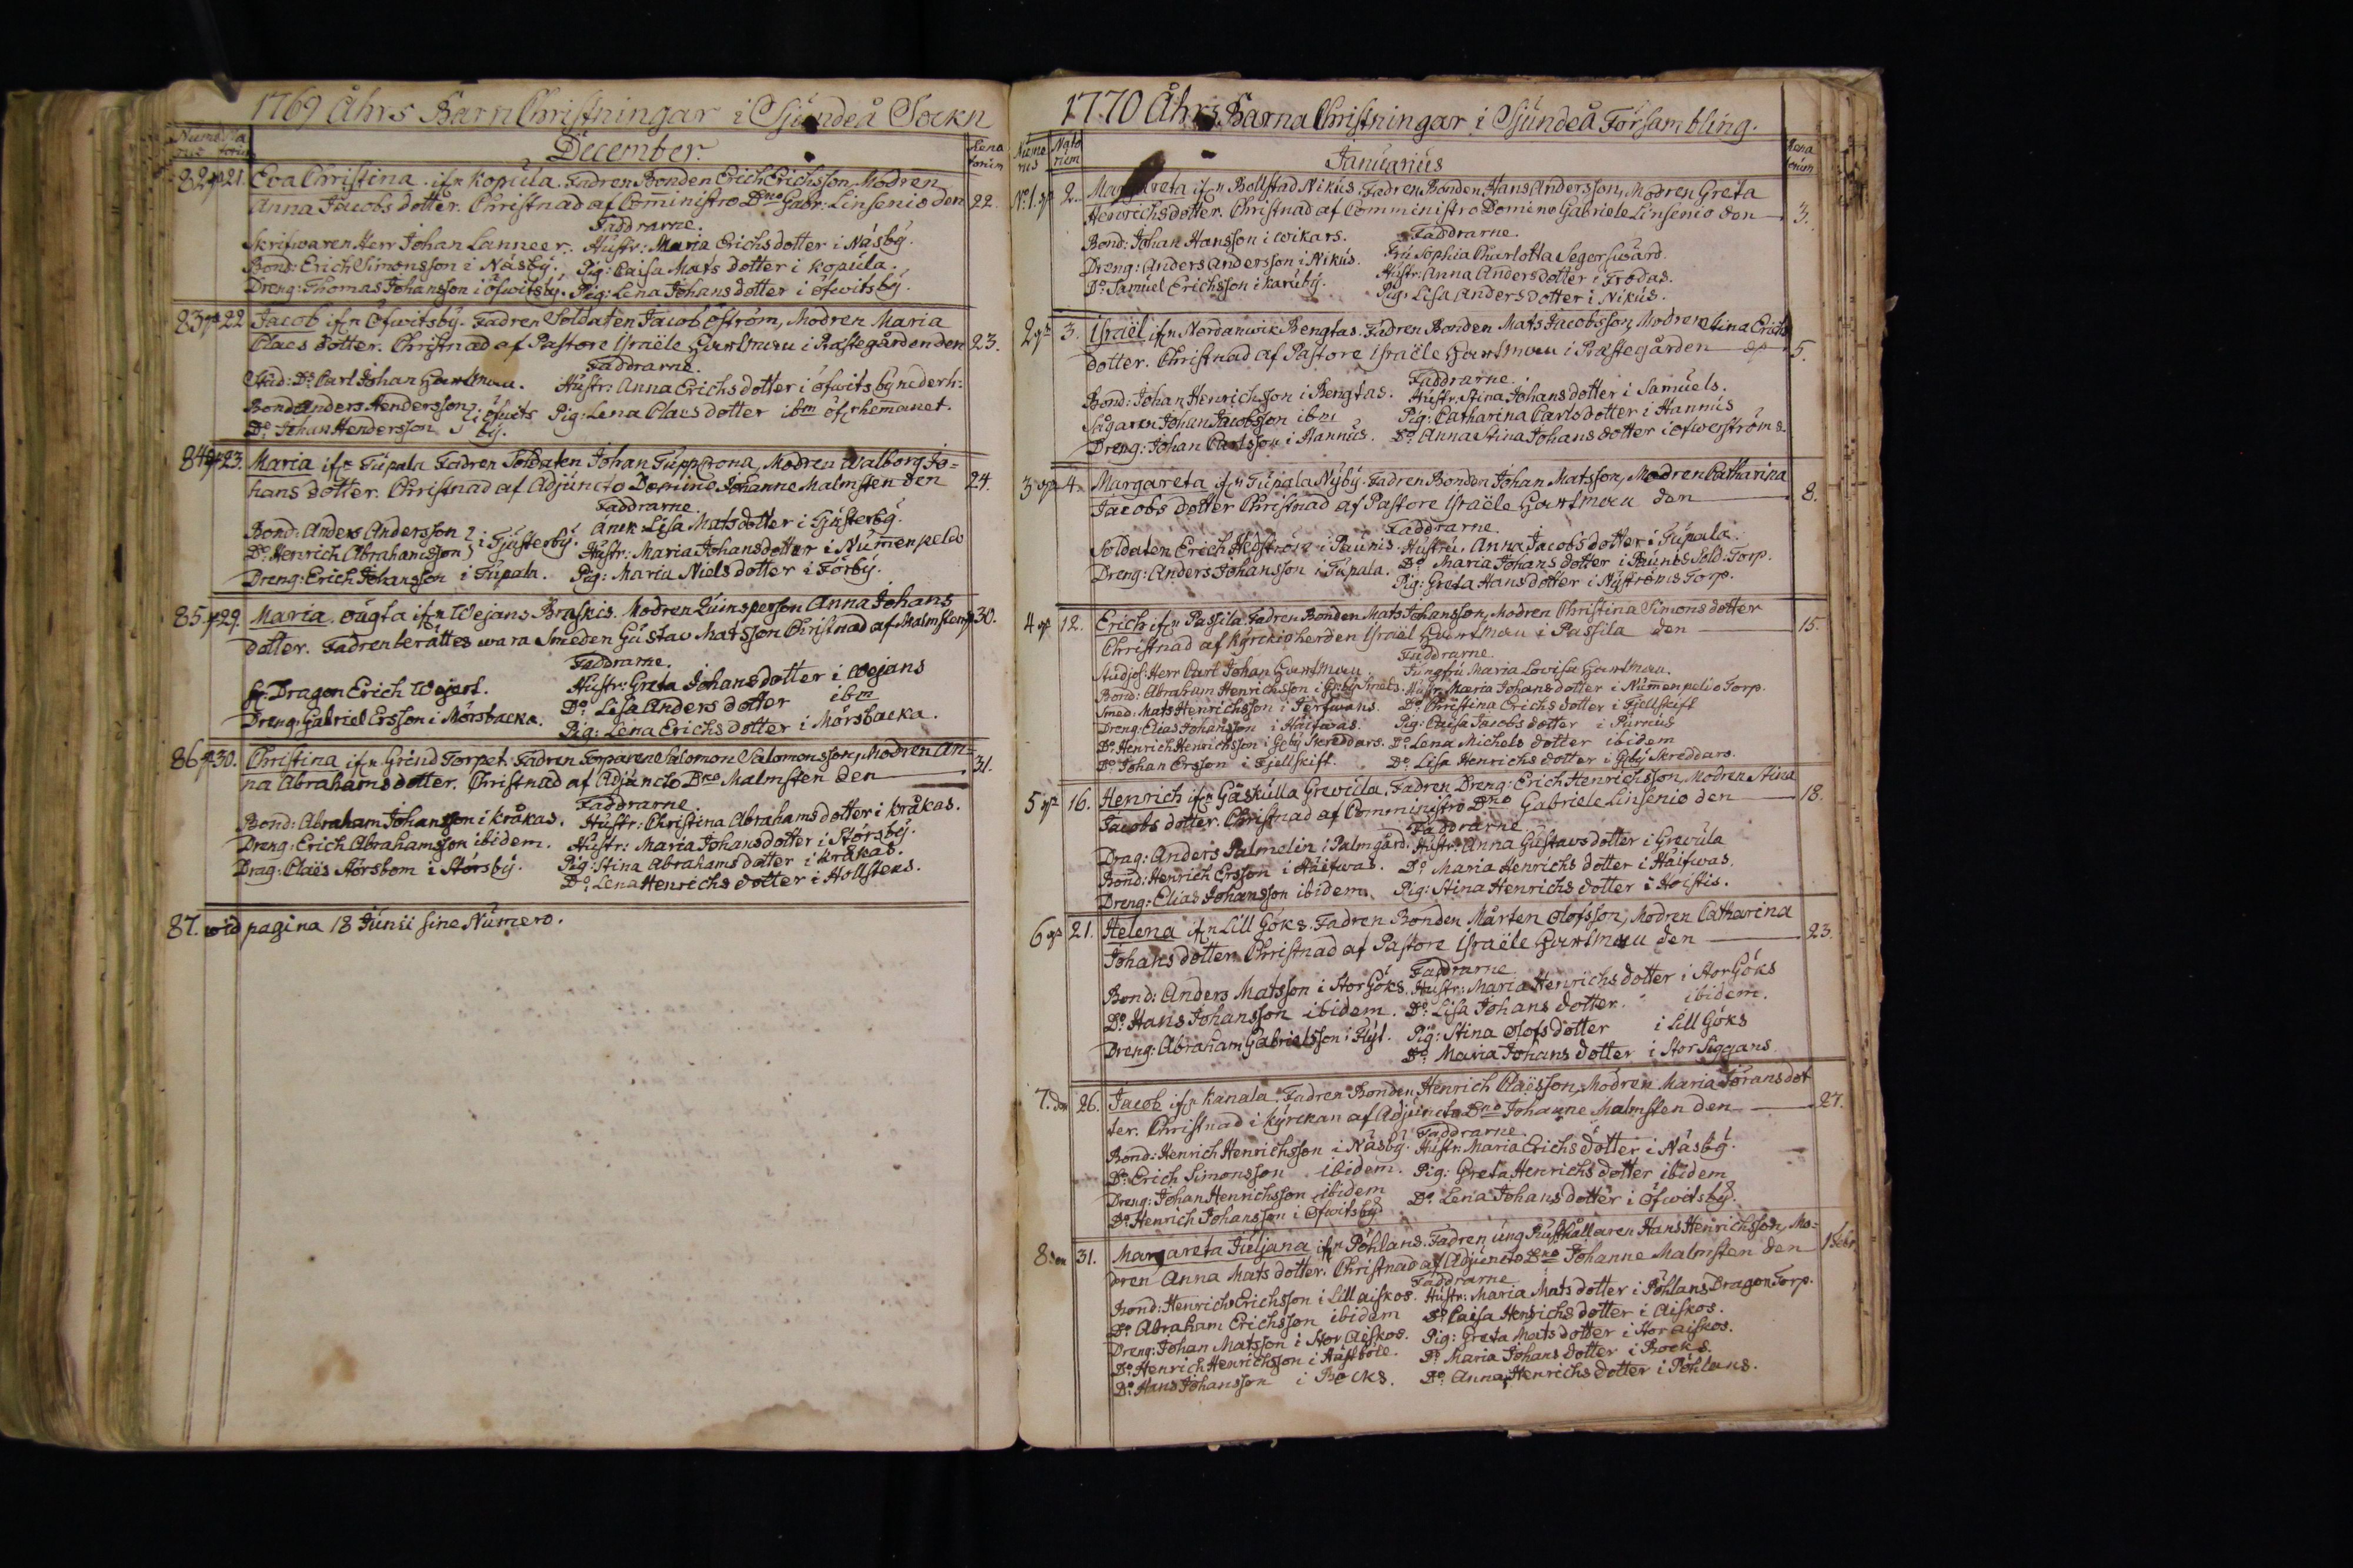 1769 Åhrs Barn Christningar i Sjundeå Sockn
Nume rus Na torum December. Rena torum
82 21. Eva Christina ifrn Kopula. Fadren Bonden Erich Erichsson Modren
Anna Jacobs dotter. Christnad af Coministro Dno Gabr: Linsenio den 22.
Faddrarne.
Skrifwaren Herr Johan Lanneer. Hustr: Maria Erichs dotter i Näsby.
Bond: Erich Simonsson i Näsby. Pig: Caisa Mats dotter i Kopula.
Dreng: Thomas Johansson i Öfwitsby. Pig: Lena Johans dotter i öfwitsby.
83 22 Jacob ifrn Öfwitsby. Fadren Soldaten Jacob Öström, Modren Maria
Claes dotter. Christnad af Pastore Israële Hartman i Prästegården den 23.
Faddrarne.
Stud: Dn Carl Johan Hartman. Hustr: Anna Erichs dotter i öfwitsby nederh:
Bond Anders Hendersson i öfwits Pig: Lena Claes dotter ibm öfr hemanet.
Do Johan Hendersson by.
84 23. Maria ifrn Tupala Fadren Soldaten Johan Tuppcrona, Modren Walborg Jo=
hans dotter. Christnad af Adjuncto Domino Johanne Malmsten den 24.
Faddrarne.
Bond: Anders Andersson i Tjusterby. Anck Lisa Mats dotter i Tjusterby.
Do Henrich Abrahamsson Hustr: Maria Johansdotter i Nummenpeldo
Dreng: Erich Johansson i Tupala. Pig: Maria Niels dotter i Förby.
85 29. Maria. oägta ifrn Wejans Braskis. Modren Quinsperson Anna Johans
dotter. Fadren berättes wara Smeden Gustav Matsson Christnad af Malmsten 30.
Faddrarne.
Dragon Erich Wejert. Hustr: Greta Johans dotter i Wejans
Dreng: Gabriel Ersson i Mörsbacka. Do Lisa Anders dotter ibm
Pig: Lena Erichs dotter i Mörsbacka.
86 30. Christina ifrn Grind Torpet. Fadren Torparene Salomon Salomonsson, Modren An=
na Abrahams dotter. Christnad af Adjuncto Dno Malmsten den 31.
Faddrarne
Bond: Abraham Johansson i Kråkas. Hustr: Christina Abrahams dotter i Kråkas.
Dreng: Erich Abrahamsson ibidem. Hustr: Maria Johans dotter i Störsby.
Drag: Claës Störsbom i Störsby. Pig: Stina Abrahams dotter i Kråkas.
Do Lena Henrichs dotter i Hollstens.
87. wid pagina 18 Junii sine Numero.
1770 Åhrs Barna Christningar i Sjundeå Försambling.
Nume rus Nato rium Januarius Rena torum
No 1. 2. Margareta ifrn Bollstad Nikus. Fadren Bonden Hans Andersson, Modren Greta
Henrichs dotter. Christnad af Comministro Domino Gabriele Linsenio den 3.
Faddrarne.
Bond: Johan Hansson i Wikars. Fru Sophia Charlotta Segerswärd.
Dreng: Anders Andersson i Nikus. Hustr: Anna Anders dotter i Frodas.
Do Samuel Erichsson i Karuby. Pig: Lisa Anders dotter i Nikus.
2 3. Israël ifrn Nordanwik Bengtas. Fadren Bonden Mats Jacobsson, Modren Stina Erichs
dotter. Christnad af Pastore Israële Hartman i Prästegården 5.
Faddrarne.
Bond: Johan Henrichsson i Bengtas. Hustr: Stina Johans dotter i Samuels.
Sågaren Johan Jacobsson ibm Pig: Catharina Carls dotter i Hannus
Dreng: Johan Carlsson i Hannus. Do Anna Stina Johans dotter i öfwerströms.
3 4. Margareta ifrn Tupala Nyby. Fadren Bonden Johan Matsson, Modren Catharina
Jacobs dotter Christnad af Pastore Israële Hartman den 8.
Faddrarne.
Soldaten Erich Hedström i Paunis. Hustru. Anna Jacobs dotter i Tupala.
Dreng: Anders Johansson i Tupala. Do Maria Johans dotter i Paunis Sold: Torp.
Pig: Greta Hans dotter i Nyströms Torp.
4 12. Erich ifrn Passila Fadren Bonden Mats Johansson, Modren Christina Simons dotter
Christnad af Kyrckioherden Israël Hartman i Passila den 15.
Faddrarne.
Studios: Herr Carl Johan Hartman Jungfru Maria Lovisa Hartman.
Bond: Abraham Henrichsson i Geby Smeds. Hustr: Maria Johans dotter i Nummenpelio Torp.
Smed: Mats Henrichsson i Jerfwans. Do Christina Erichs dotter i Fjellskift
Dreng: Elias Johansson i Haifwas. Pig: Caisa Jacobs dotter i Purnus
Do Henrich Henrichsson i Geby Skreddars. Do Lena Michels dotter ibidem
Do Johan Ersson i Fjellskift. Do Lisa Henrichs dotter i Geby Skreddars.
5 16. Henrich ifrn Gåskulla Grevula. Fadren Dreng: Erich Henrichsson, Modren Stina
Jacobs dotter. Christnad af Comministro Dno Gabriele Linsenio den 18.
Faddrarne.
Drag: Anders Palmelin i Palmgård. Hustr: Anna Gustavs dotter i Grevula
Bond: Henrich Ersson i Häifwas. Do Maria Henrichs dotter i Häifwas.
Dreng: Elias Johansson ibidem. Pig: Stina Henrichs dotter i Hoistis.
6 21. Helena ifrn Lill Göks. Fadren Bonden Mårten Olofsson, Modren Catharina
Johans dotter. Christnad af Pastore Israële Hartman den 23.
Faddrarne
Bond: Anders Matsson i Stor Göks. Hustr: Maria Henrichs dotter i Stor Göks
Do Hans Johansson ibidem. Do Lisa Johans dotter. ibidem.
Dreng: Abraham Gabrielsson i Flyt. Pig: Stina Olofs dotter i Lill Göks
Do Maria Johans dotter i Stor Siggans
7. den 26. Jacob ifrn Kanala. Fadren Bonden Henrich Claësson, Modren Maria Jörans dot
ter. Christnad i kyrckan af Adjuncto Dno Johanne Malmsten den 27.
Faddrarne.
Bond: Henrich Henrichsson i Näsby. Hustr: Maria Erichs dotter i Näsby.
Do Erich Simonsson ibidem. Pig: Greta Henrichs dotter ibidem
Dreng: Johan Henrichsson ibidem Do Lena Johans dotter i Öfwitsby.
Do Henrich Johansson i Öfwitsby
8. 31. Margareta Juljana ifrn Pöhlans. Fadren ung Rusthållaren Hans Henrichsson, Mo=
dren Anna Mats dotter. Christnad af Adjuncto Dno Johanne Malmsten den 1 Febr.
Faddrarne
Bond: Henrich Erichsson i Lill aiskos. Hustr: Maria Mats dotter i Pöhlans Dragon Torp.
Do Abraham Erichsson ibidem Do Caisa Henrichs dotter i Aiskos.
Dreng: Johan Matsson i Stor Aiskos. Pig: Greta Mats dotter i Stor aiskos.
Do Henrich Henrichsson i Hästböle. Do Maria Johans dotter i Bocks.
Do Hans Johansson i Bocks. Do Anna Henrichs dotter i Pöhlans.